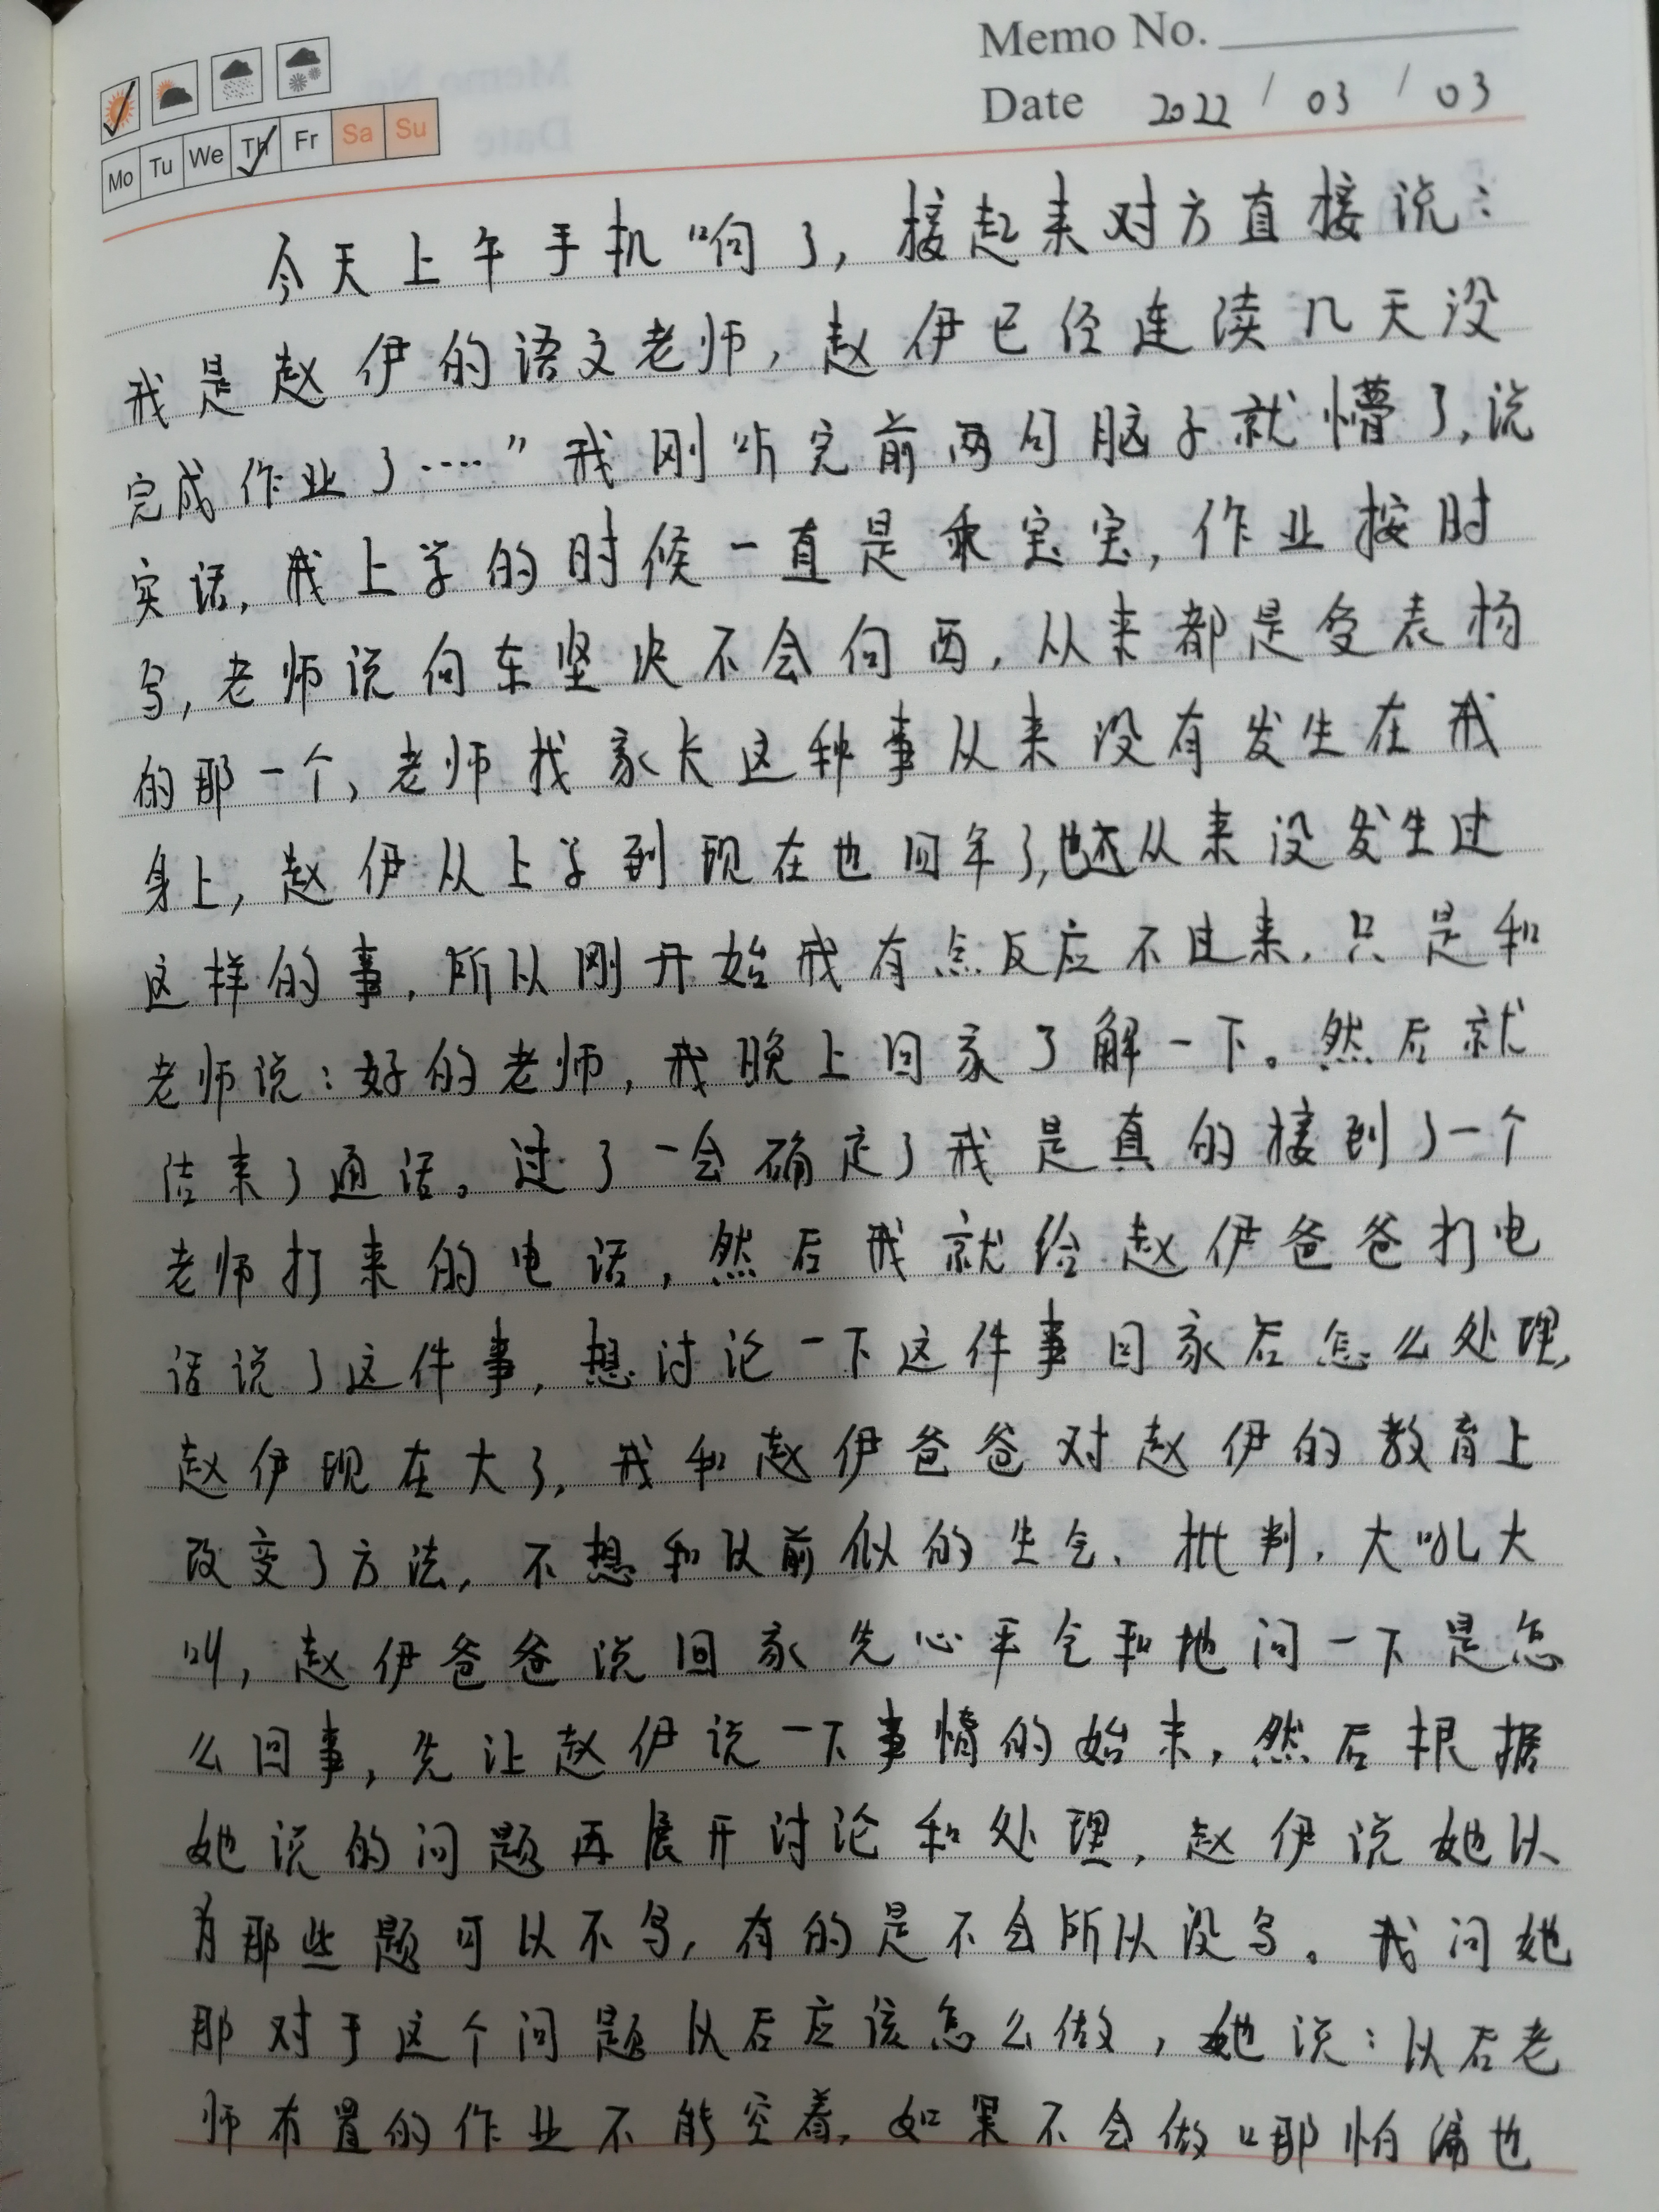 Memo No.
Date 2022 / 03 / 03
Mo Tu We Th Fr Sa Su
今天上午手机响了,接起来对方直接说:
我是赵伊的语文老师,赵伊已经连续几天没
完成作业了····”我刚听完前两句脑子就懵了,说
实话,我上学的时候一直是乖宝宝,作业按时
写,老师说向东坚决不会向西,从来都是受表扬
的那一个,老师找家长这种事从来没有发生在我
身上,赵伊从上学到现在也四年了,也从来没发生过
这样的事,所以刚开始我有点反应不过来,只是和
老师说:好的老师,我晚上回家了解一下。然后就
结束了通话。过了一会确定了我是真的接到了一个
老师打来的电话,然后我就给赵伊爸爸打电
话说了这件事,想讨论一下这件事回家后怎么处理,
赵伊现在大了,我和赵伊爸爸对赵伊的教育上
改变了方法,不想和以前似的生气、批判,大吼大
叫,赵伊爸爸说回家先心平气和地问一下是怎
么回事,先让赵伊说一下事情的始末,然后根据
她说的问题再展开讨论和处理,赵伊说她以
为那些题可以不写,有的是不会所以没写。我问她
那对于这个问题以后应该怎么做,她说:以后老
师布置的作业不能空着,如果不会做哪怕编也